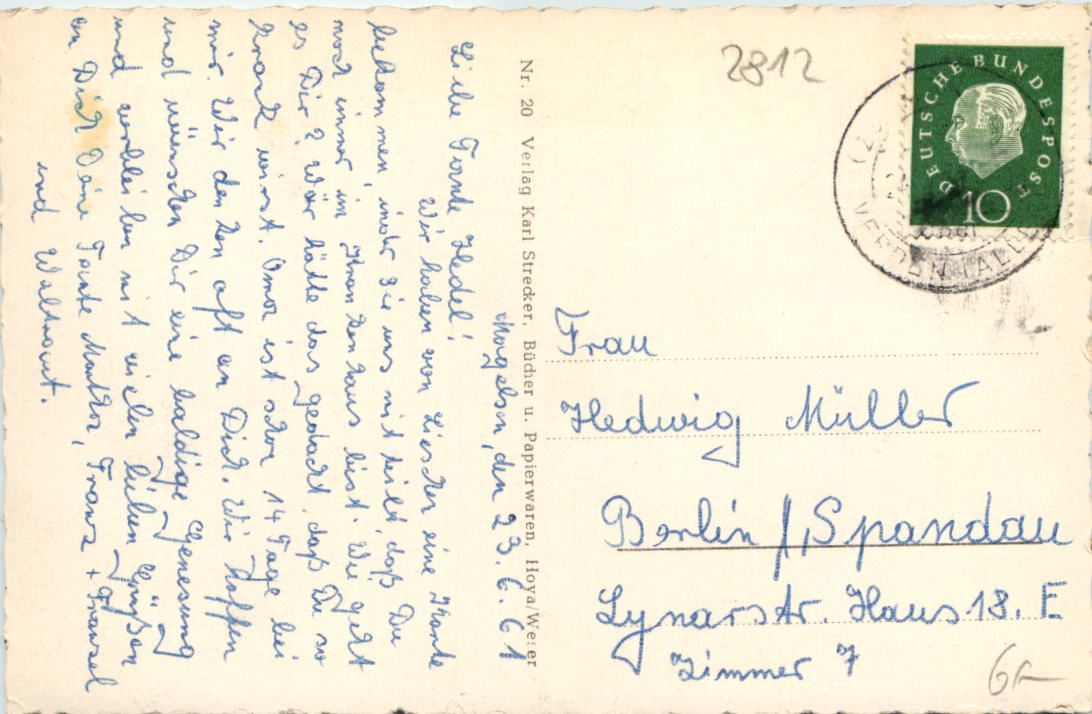 Magelsen, den 23.6.61
Liebe Tante Hedel!
Wir haben von Lieschen eine Karte
bekommen, indehr sie uns mitteilt, daß Du
noch immer im Krankenhaus bist. Wie geht
es Dir? Wär hätte das gedacht, daß Du so
krank wirst. Oma ist schon 14 Tage bei
mir. Wir denken oft an Dich. Wir hoffen
und wünschen Dir eine baldige Genesung
und verbleiben mit vielen lieben Grüßen
an Dich Deine Tante Martha, Franz + Fransel
und Waltraut.
Nr. 20 Verlag Karl Strecker, Bücher u. Papierwaren, Hoya/Weser
2812
DEUTSCHE BUNDESPOST
10
VERDEN (ALLER)
Frau
Hedwig Müller
Berlin /, Spandau
Lynarstr. Haus 18. E
Zimmer 7